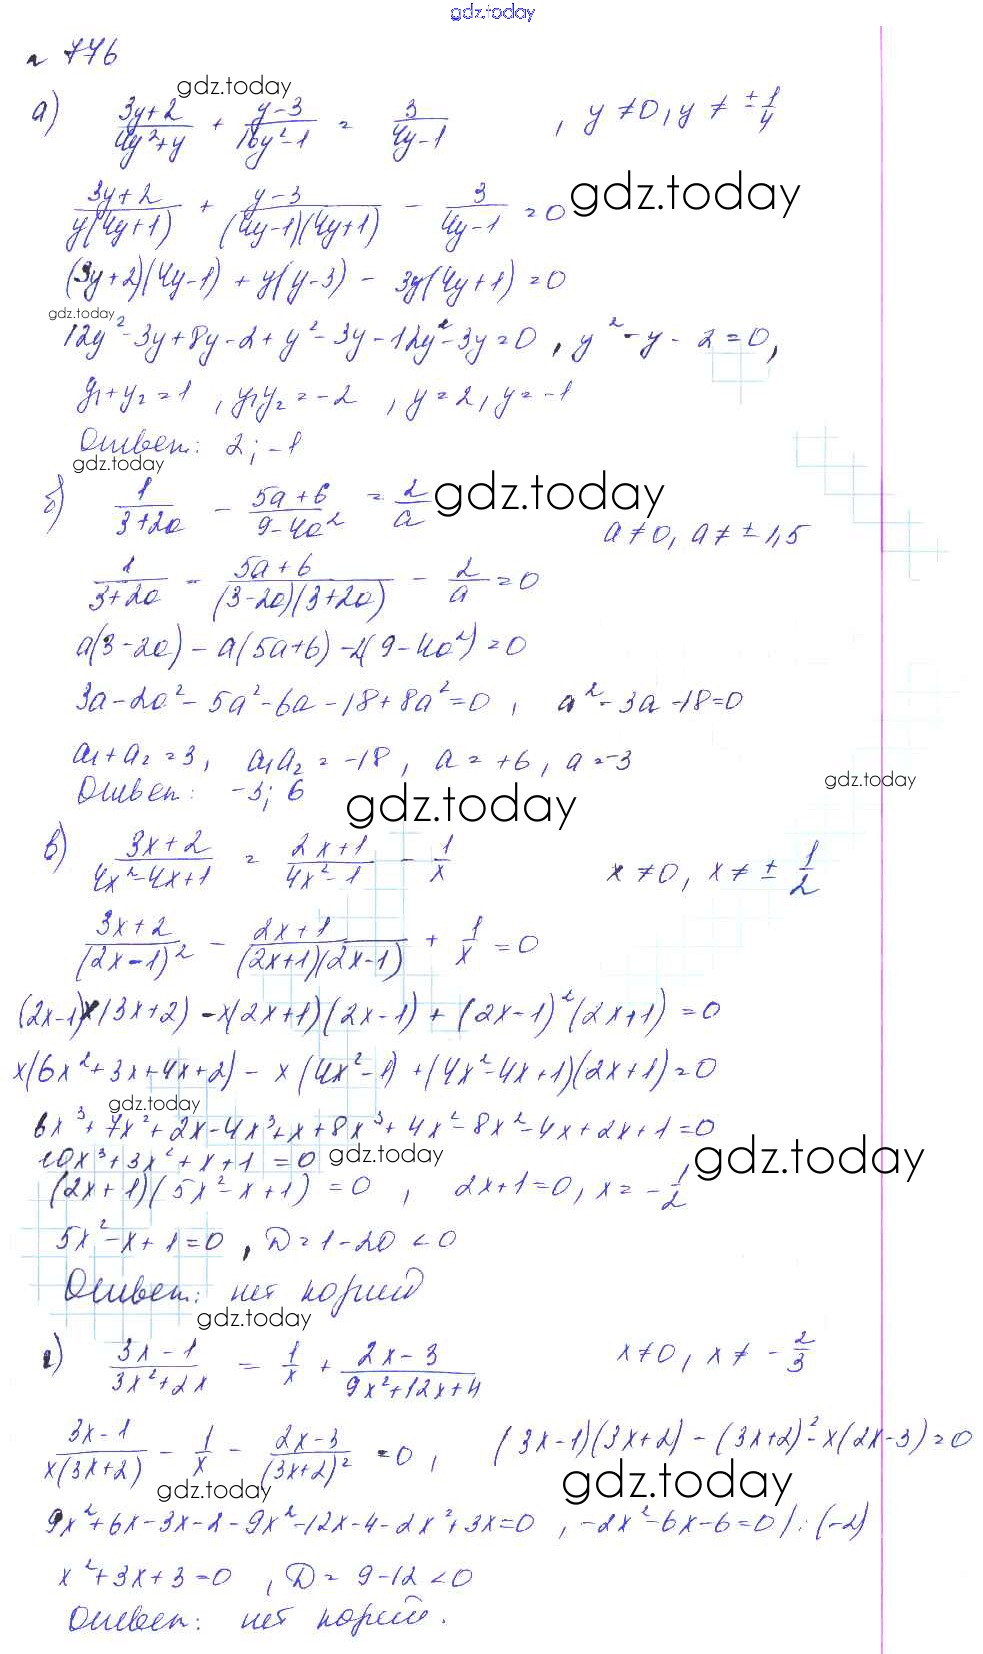 gdz.today
n 776
gdz.today
а) (3y+2)/(4y²+y) + (y-3)/(16y²-1) = 3/(4y-1) , y ≠ 0, y ≠ ± 1/4
(3y+2)/(y(4y+1)) + (y-3)/((4y-1)(4y+1)) - 3/(4y-1) = 0 gdz.today
(3y+2)(4y-1) + y(y-3) - 3y(4y+1) = 0
gdz.today
12y² - 3y + 8y - 2 + y² - 3y - 12y² - 3y = 0 , y² - y - 2 = 0 ,
y₁+y₂ = 1 , y₁y₂ = -2 , y = 2, y = -1
Ответ: 2; -1
gdz.today
б) 1/(3+2a) - (5a+6)/(9-4a²) = 2/a gdz.today a ≠ 0, a ≠ ± 1,5
1/(3+2a) - (5a+6)/((3-2a)(3+2a)) - 2/a = 0
a(3-2a) - a(5a+6) - 2(9-4a²) = 0
3a - 2a² - 5a² - 6a - 18 + 8a² = 0 , a² - 3a - 18 = 0
a₁+a₂ = 3, a₁a₂ = -18 , a = +6, a = -3
gdz.today
Ответ: -3; 6 gdz.today
в) (3x+2)/(4x²-4x+1) = (2x+1)/(4x²-1) - 1/x x ≠ 0, x ≠ ± 1/2
(3x+2)/(2x-1)² - (2x+1)/((2x+1)(2x-1)) + 1/x = 0
(2x-1)x(3x+2) - x(2x+1)(2x-1) + (2x-1)²(2x+1) = 0
x(6x²+3x+4x+2) - x(4x²-1) + (4x²-4x+1)(2x+1) = 0
gdz.today
6x³ + 7x² + 2x - 4x³ + x + 8x³ + 4x² - 8x² - 4x + 2x + 1 = 0
10x³ + 3x² + x + 1 = 0 gdz.today gdz.today
(2x+1)(5x²-x+1) = 0 , 2x+1 = 0, x = - 1/2
5x² - x + 1 = 0 , D = 1 - 20 < 0
Ответ: нет корней
gdz.today
г) (3x-1)/(3x²+2x) = 1/x + (2x-3)/(9x²+12x+4) x ≠ 0, x ≠ - 2/3
(3x-1)/(x(3x+2)) - 1/x - (2x-3)/(3x+2)² = 0 , (3x-1)(3x+2) - (3x+2)² - x(2x-3) = 0
gdz.today gdz.today
9x² + 6x - 3x - 2 - 9x² - 12x - 4 - 2x² + 3x = 0 , -2x² - 6x - 6 = 0 / : (-2)
x² + 3x + 3 = 0 , D = 9 - 12 < 0
Ответ: нет корней.